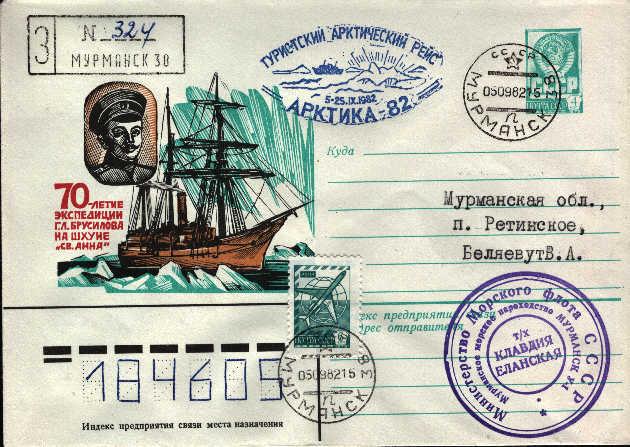 З № 324
МУРМАНСК 30
ТУРИСТСКИЙ АРКТИЧЕСКИЙ РЕЙС
5-25.IX.1982
АРКТИКА-82
СССР
МУРМАНСК
0509821 5
70-ЛЕТИЕ
ЭКСПЕДИЦИИ
Г.Л. БРУСИЛОВА
НА ШХУНЕ
„СВ. АННА"
Куда
Мурманская обл.,
п. Ретинское,
БеляевутВ.А.
Индекс предприятия связи
адрес отправителя
МУРМАНСК
0509821 5
Министерство Морского флота СССР
Мурманское морское пароходство МУРМАНСК
т/х
КЛАВДИЯ
ЕЛАНСКАЯ
184605
Индекс предприятия связи места назначения